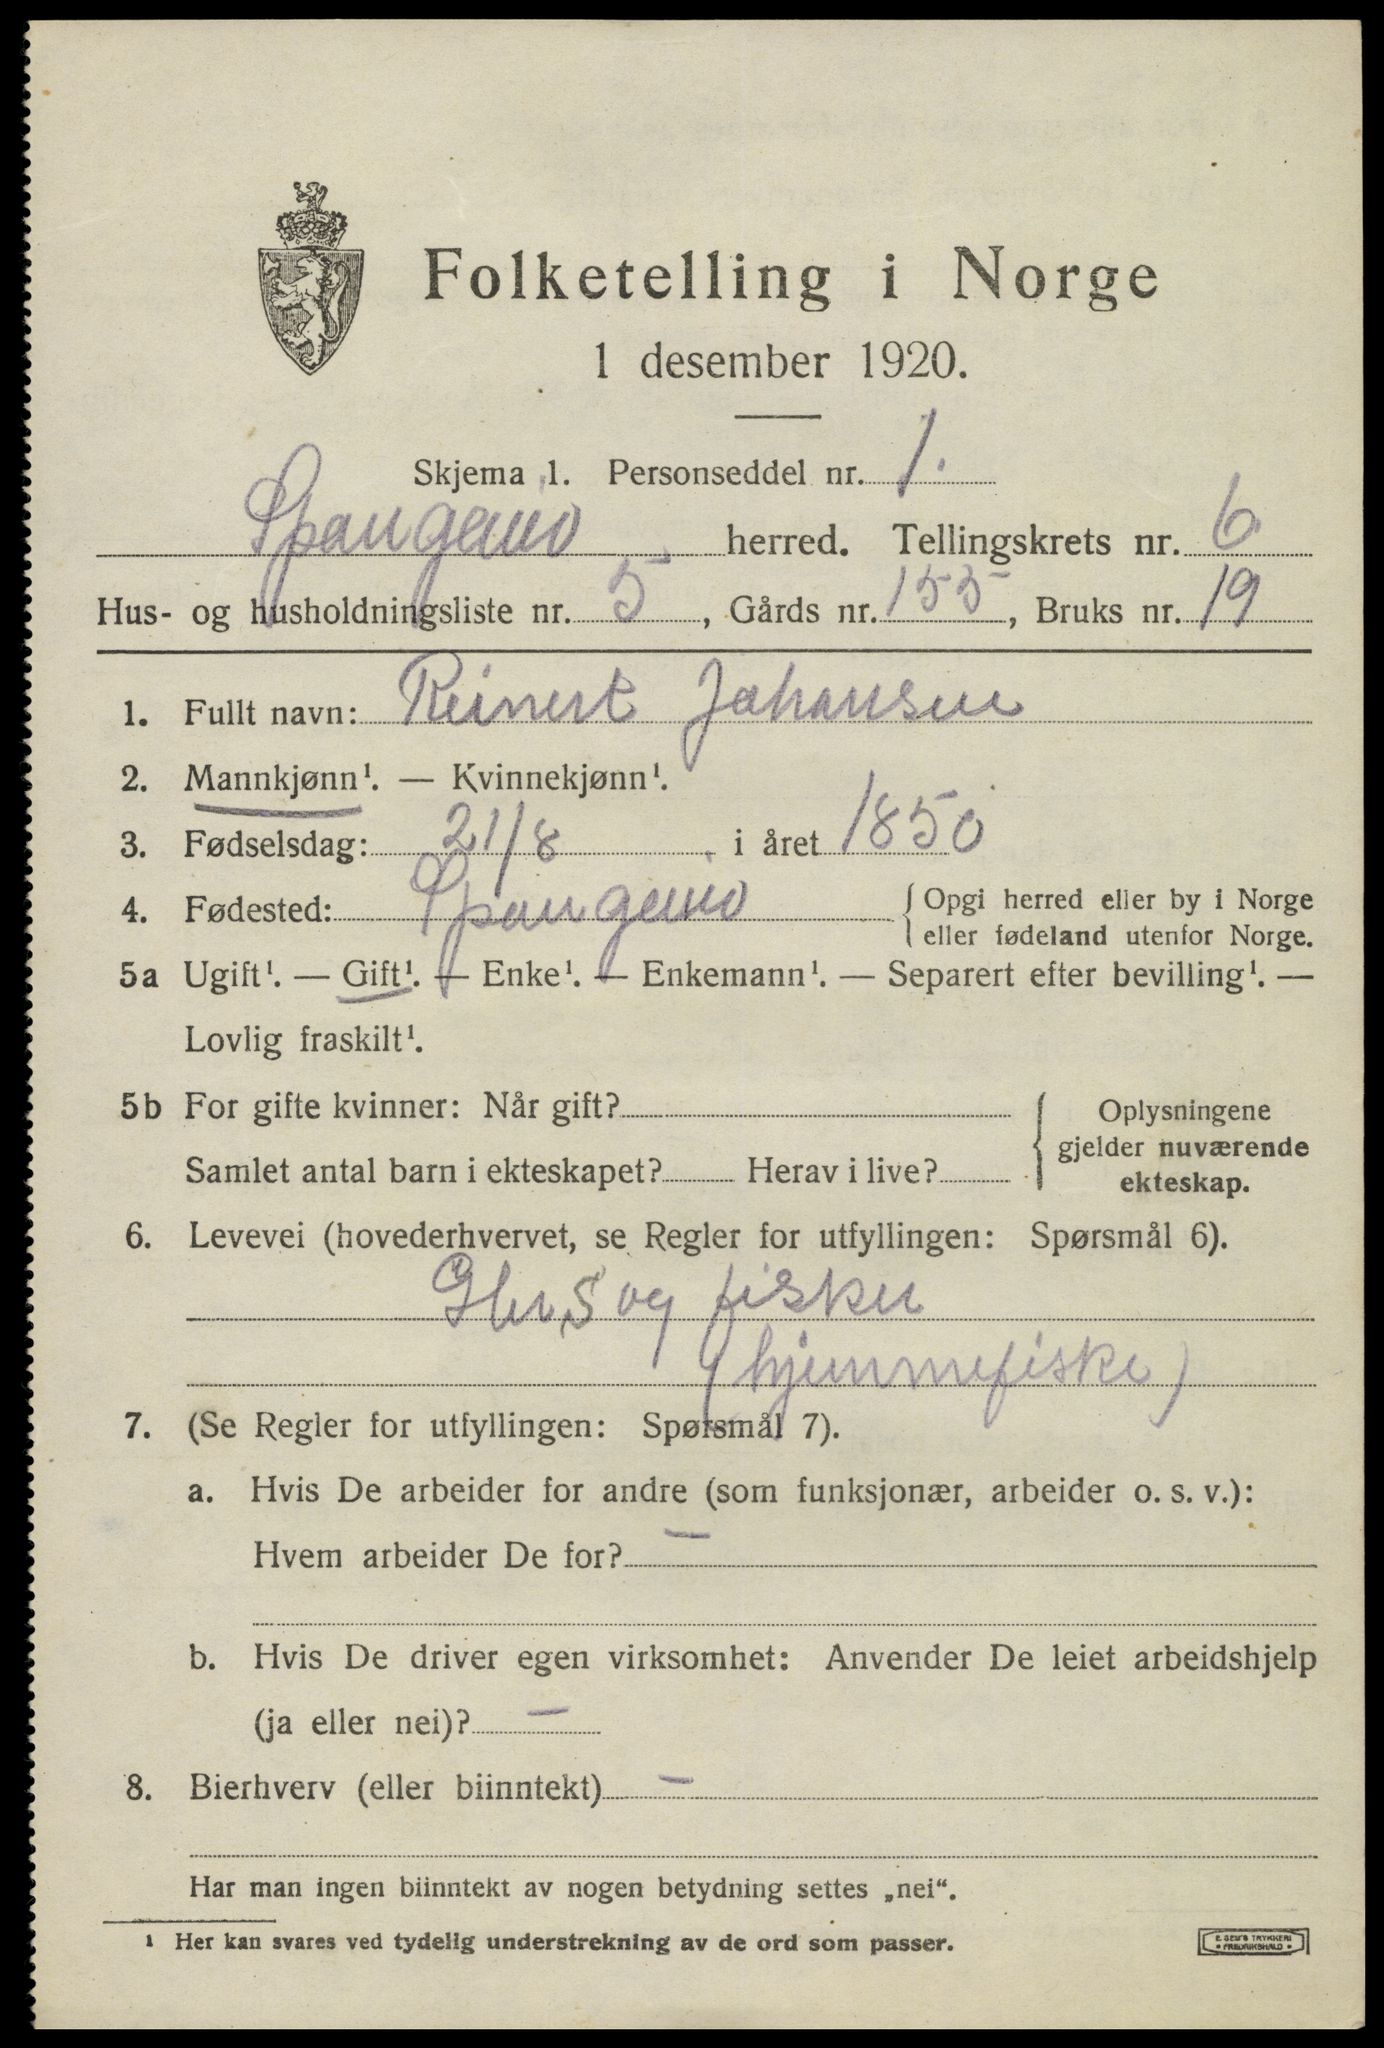 Folketelling i Norge
1 desember 1920.
Skjema 1. Personseddel nr. 1.
Spangereid herred. Tellingskrets nr. 6
Hus- og husholdningsliste nr. 5, Gårds nr. 155, Bruks nr. 19
1. Fullt navn: Reinert Johansen
2. Mannkjønn¹. — Kvinnekjønn¹.
3. Fødselsdag: 21/8 i året 1850
4. Fødested: Spangereid {Opgi herred eller by i Norge
eller fødeland utenfor Norge.
5a Ugift¹. — Gift¹. — Enke¹. — Enkemann¹. — Separert efter bevilling¹. —
Lovlig fraskilt¹.
5b For gifte kvinner: Når gift? { Oplysningene
gjelder nuværende
Samlet antal barn i ekteskapet? Herav i live?
ekteskap.
6. Levevei (hovederhvervet, se Regler for utfyllingen: Spørsmål 6).
Gbr. S og fisker
(hjemmefiske)
7. (Se Regler for utfyllingen: Spørsmål 7).
a. Hvis De arbeider for andre (som funksjonær, arbeider o. s. v.):
Hvem arbeider De for? —
b. Hvis De driver egen virksomhet: Anvender De leiet arbeidshjelp
(ja eller nei)? —
8. Bierhverv (eller biinntekt) —
Har man ingen biinntekt av nogen betydning settes „nei“.
¹ Her kan svares ved tydelig understrekning av de ord som passer.
E. SEM'S TRYKKERI
• FREDRIKSHALD •